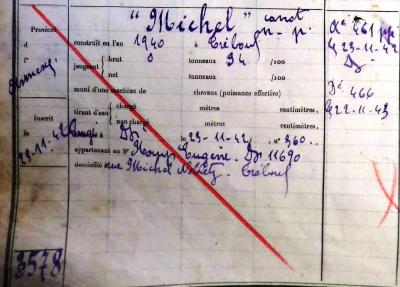 "Michel" canot
Provient
on. p.
Dé 461
le 23-11-42
d
construit en l'an 1940 à Tréboul
l'
jaugeant { brut 0 tonneaux 94 /100
net tonneaux /100
muni d'une machine de chevaux (puissance effective)
Dé 466
le 22-11-43
tirant d'eau { chargé mètres centimètres.
non chargé mètres centimètres.
Inscrit
le 23-11-42 Dz le 23-11-42, n° 360
appartenant au Sr Eugène. Dz 11690
domicilié rue Michel Tréboul
3578